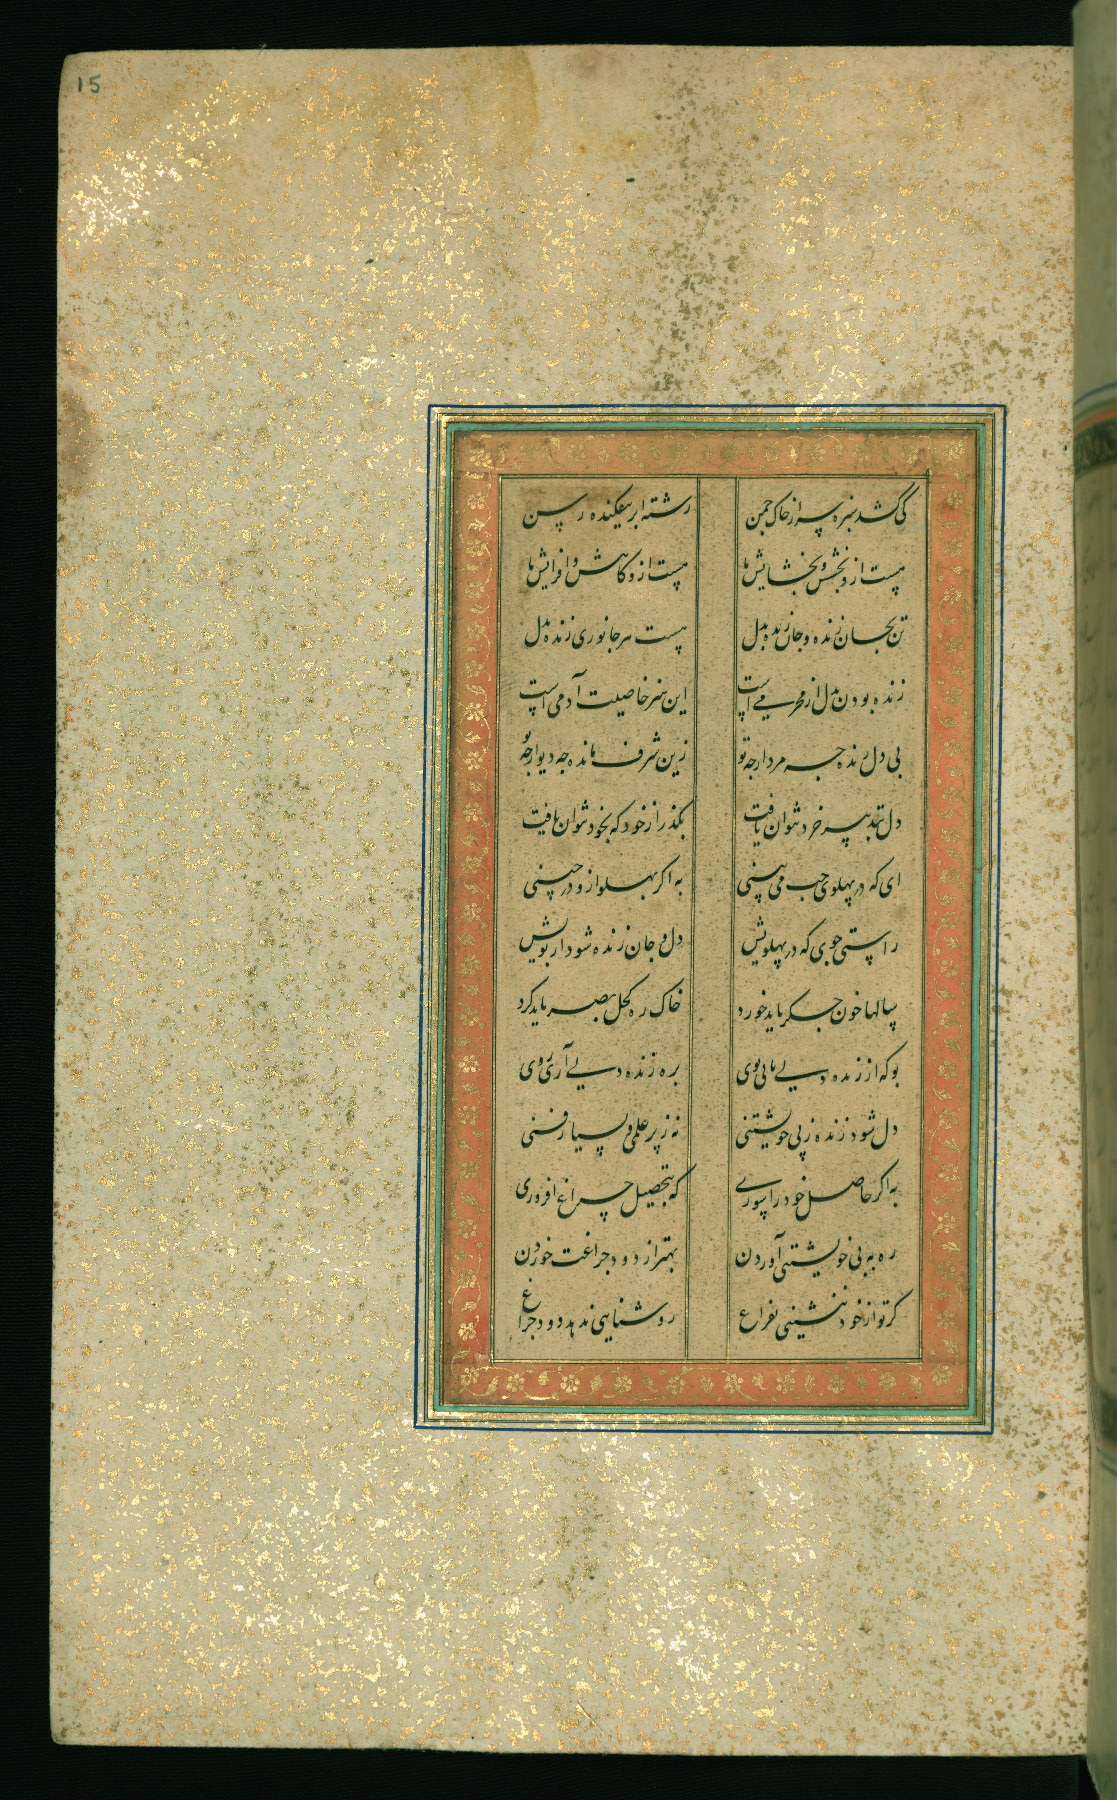 15
کی کشد سبزه سر از خاک چمن رشته ابر نیفکنده رسن
هست ازو بخشش و بخشایش‌ها هست ازو کاهش و افزایش‌ها
تن بجان زنده و جان زنده بدل نیست هر جانوری زنده بدل
زنده بودن بدل از محرمی است این هنر خاصیت آدمی است
بی دل زنده چه مردار چه تو زین شرف مانده چه دیوار چه تو
دل بتدبیر خرد نتوان یافت بگذر از خود که بخود نتوان یافت
ای که در پهلوی چپ می بینی به اگر پهلو ازو در چینی
راستی جوی که در پهلویش دل و جان زنده شود از بویش
سالها خون جگر باید خورد خاک ره کحل بصر باید کرد
بو که از زنده دلی یابی بوی بره زنده دلی آری روی
دل شود زنده ز بی خویشتنی نه ز پر علمی و بسیار فنی
به اگر حاصل خود را سوزی که بتحصیل چراغ افروزی
ره به بی خویشتنی آوردن بهتر از دود چراغت خوردن
گر تو از خود ننشینی بفراغ روشنایی ندهد دود چراغ